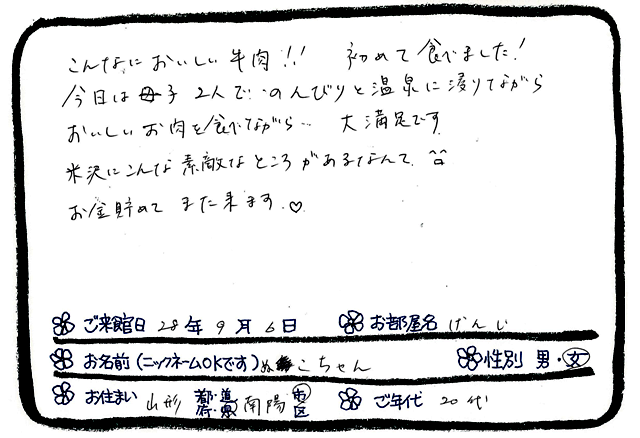 こんなにおいしい牛肉!! 初めて食べました!
今日は母子2人で…のんびりと温泉に浸りながら
おいしいお肉を食べながら… 大満足です
米沢にこんな素敵なところがあるなんて
お金貯めてまた来ます♡
ご来館日 28年9月6日 お部屋名 げんじ
お名前(ニックネームOKです) ぬこちゃん 性別 男・女
お住まい 山形 都・道・府・県 南陽 市区 ご年代 20代